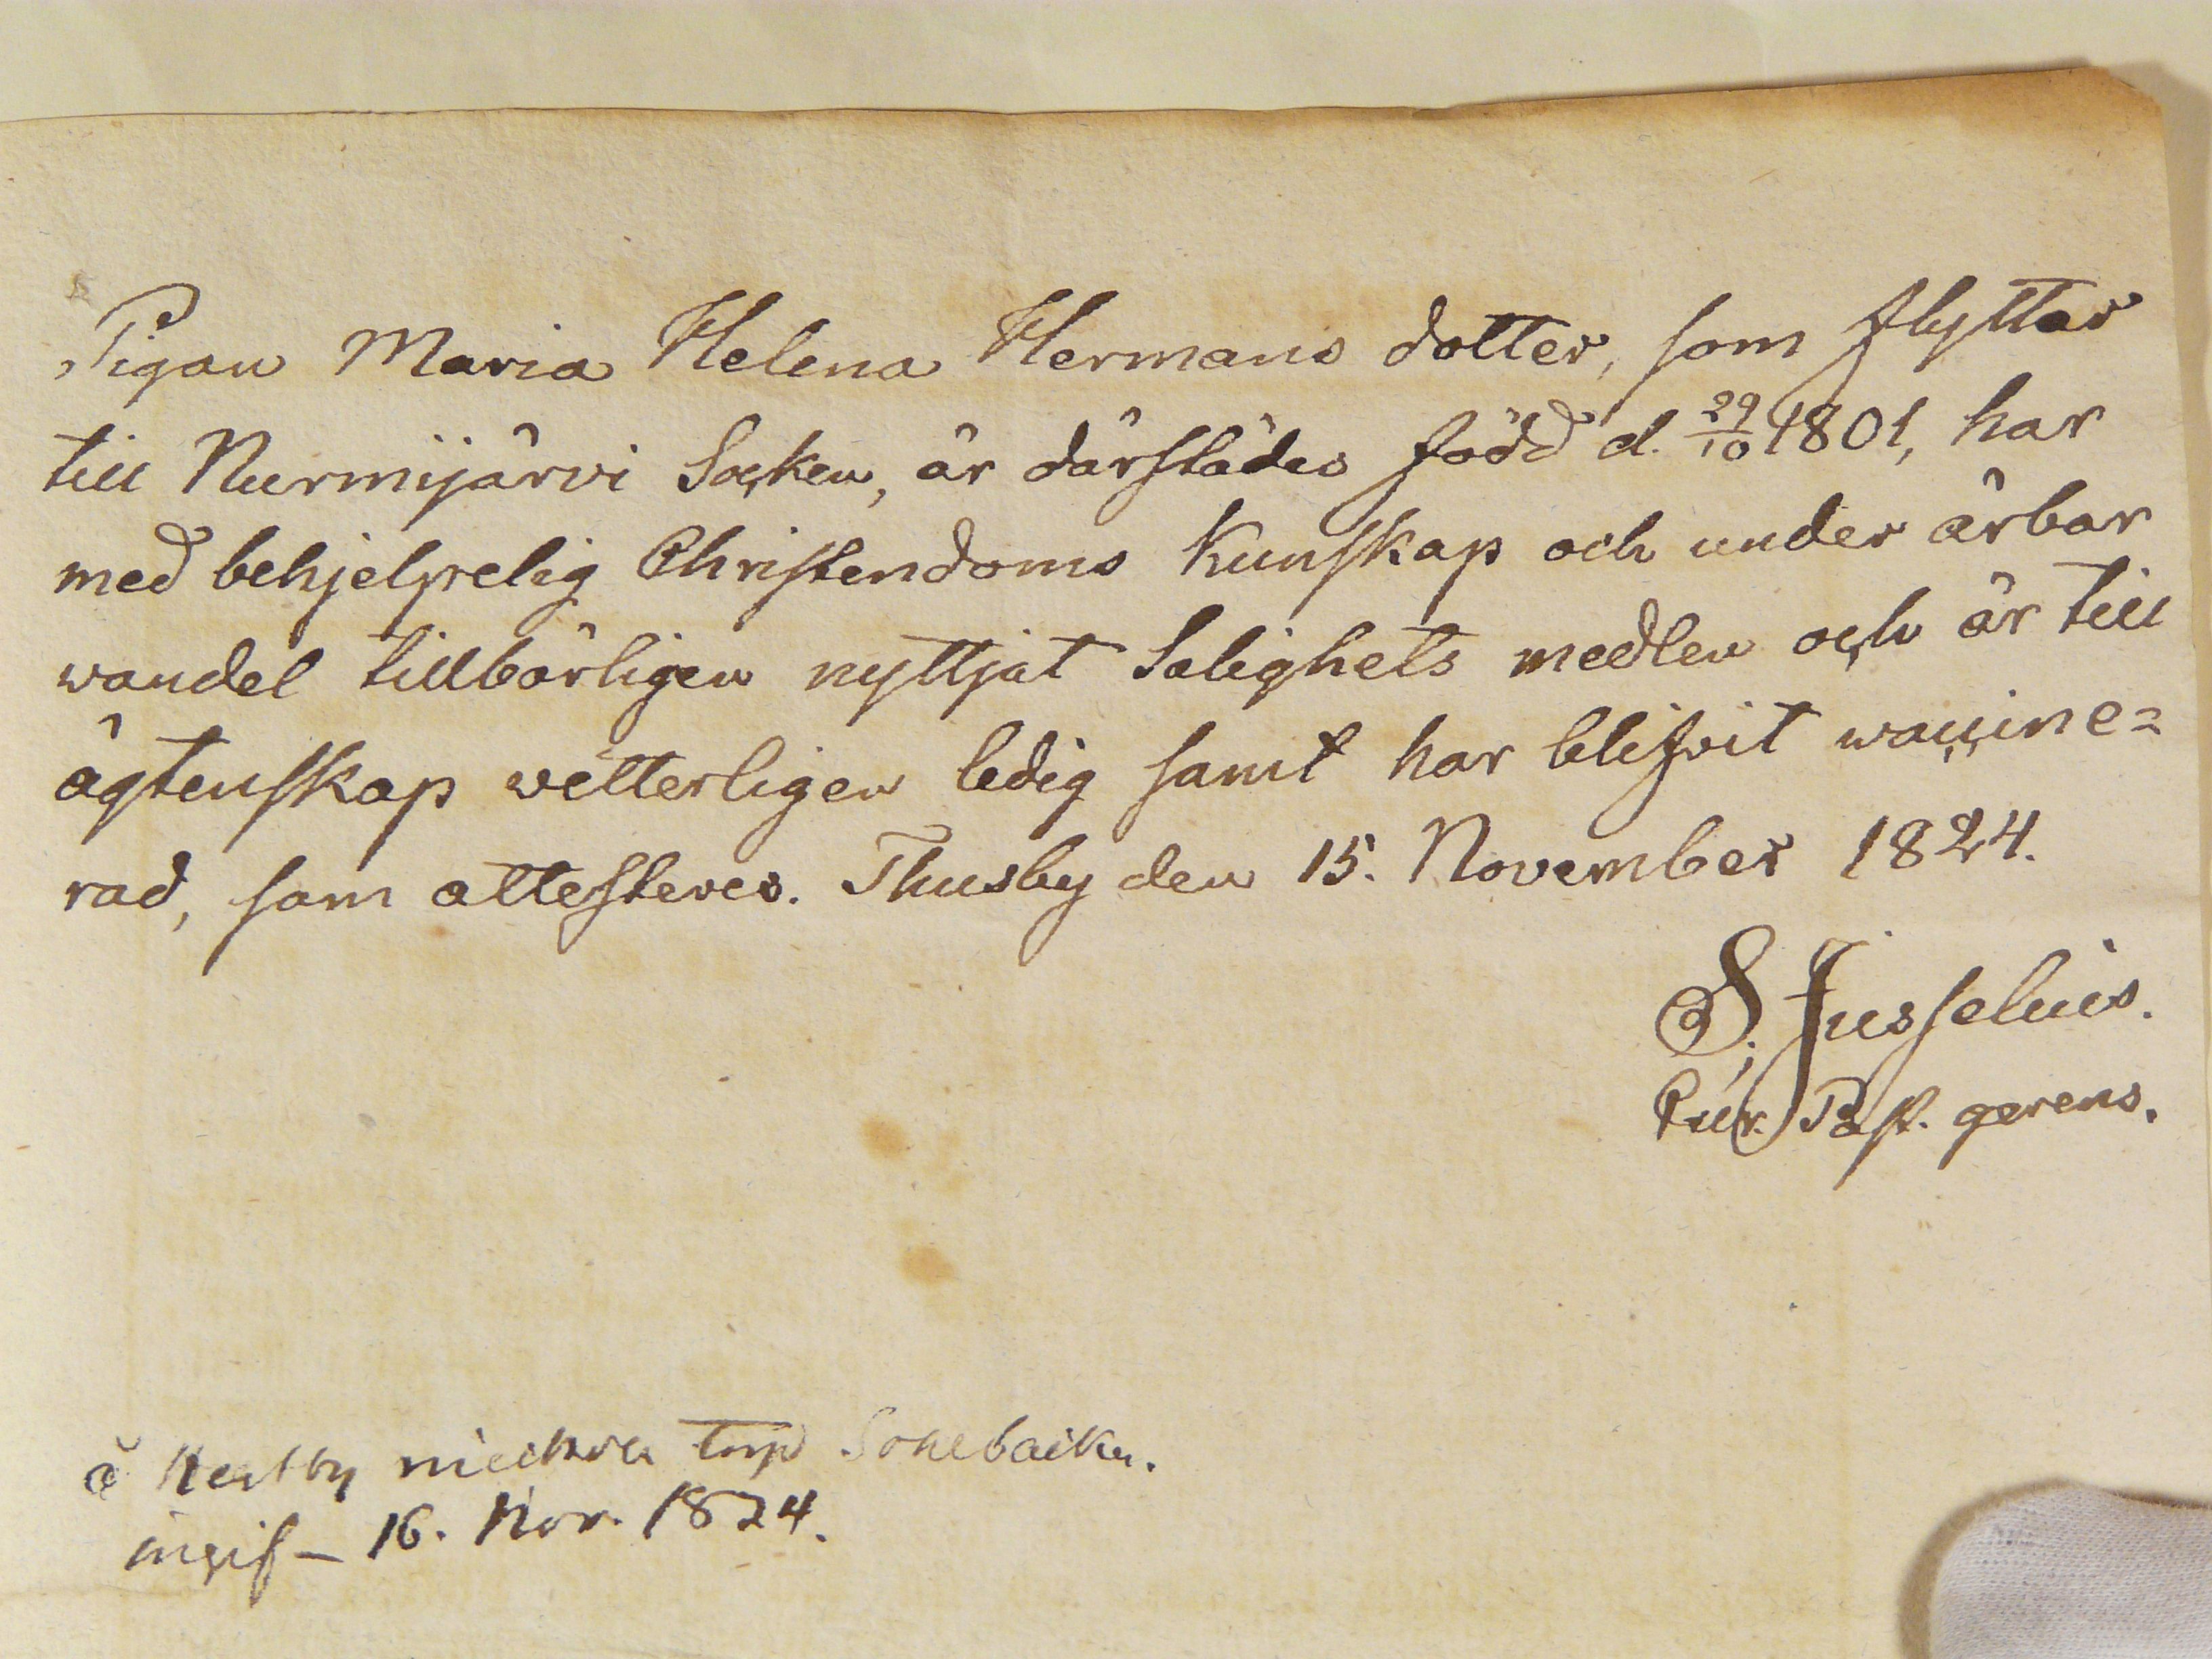 Pigan Maria Helena Hermans dotter, som flyttar
till Nurmijärvi Socken, är därstädes född d. 29/10 1801, har
med behjelpelig Christendoms Kunskap och under ärbar
wandel tillbörligen nyttjat Salighets medlen och är till
ägtenskap wetterligen ledig samt har blifvit waccine=
rad, som attesteres. Thusby den 15. November 1824.
S. Jusselius.
Cur. Past. gerens.
å torp
ingif — 16. Nov. 1824.